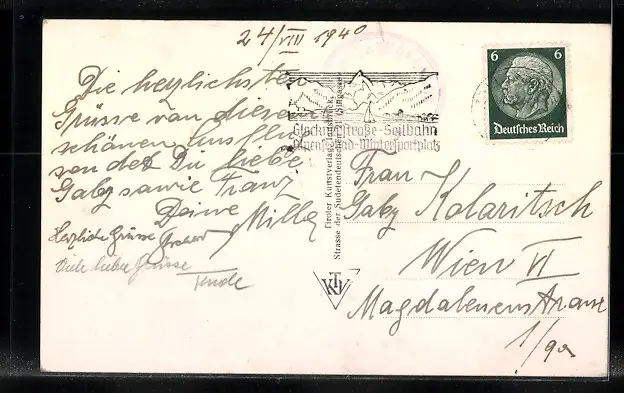 24/VIII 1940
Die herzlichsten
Grüsse von diesem
schönen Ausflug
sendet Dir liebe
Gaby sowie Franz
Deine Milly
Herzliche Grüsse
Viele liebe Grüsse
Trude
Glocknerstraße-Seilbahn
Alpenschwimmbad-Wintersportplatz
Tiroler Kunstverlag
Strasse der Sudetendeutschen
KTV
6 6
Deutsches Reich
Frau
Gaby Kolaritsch
Wien VI
Magdalenenstrasse
1/9a